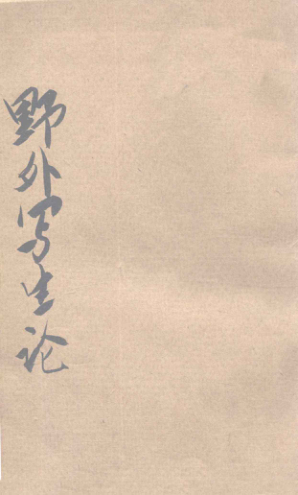 野外写生论